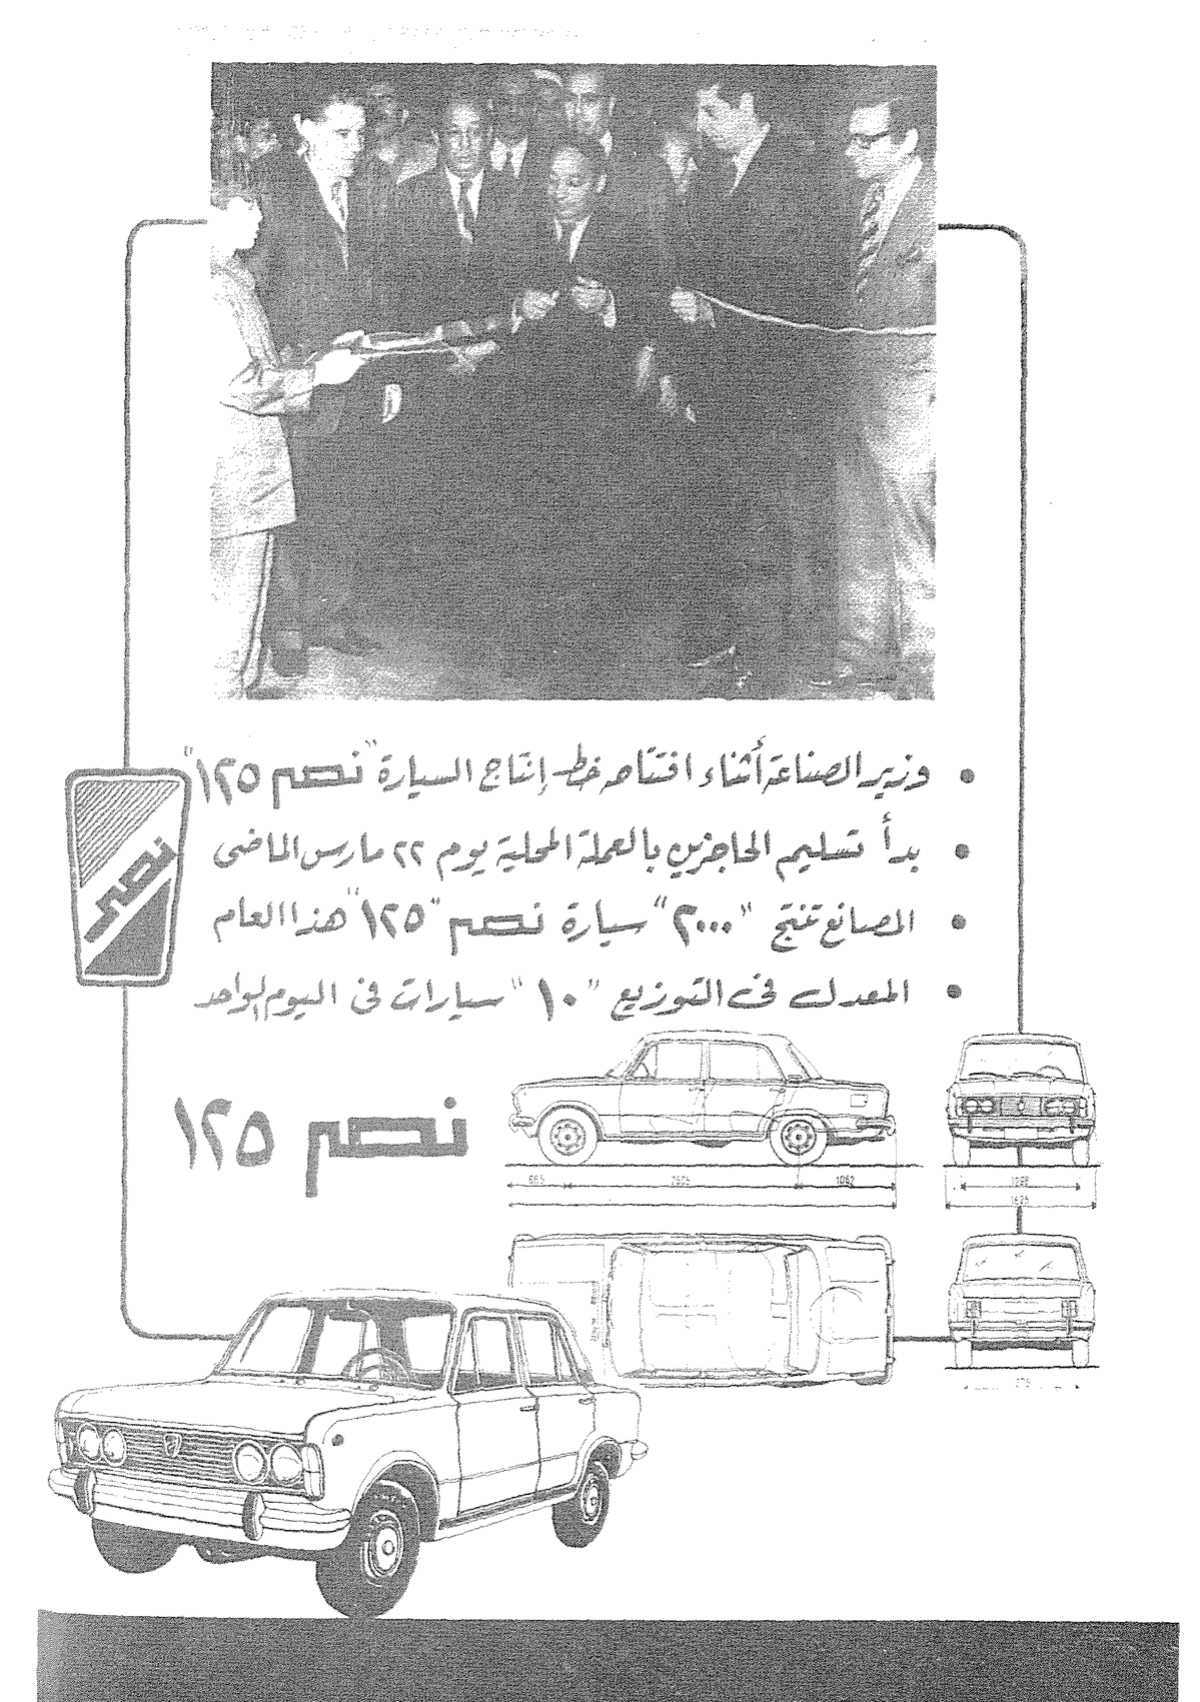 وزير الصناعة أثناء افتتاح خط إنتاج السيارة "نصر ١٢٥"
بدأ تسليم الحاجزين بالعملة المحلية يوم ٢٢ مارس الماضى
المصانع تنتج "٢٠٠٠" سيارة نصر "١٢٥" هذا العام
المعدل فى التوزيع "١٠" سيارات فى اليوم الواحد
نصر
نصر ١٢٥
665 2505 1062
1298
1625